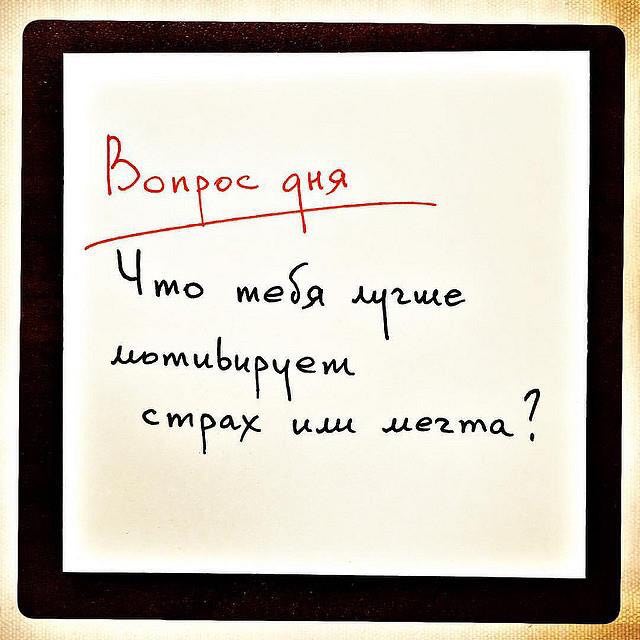 Вопрос дня
Что тебя лучше
мотивирует
страх или мечта?